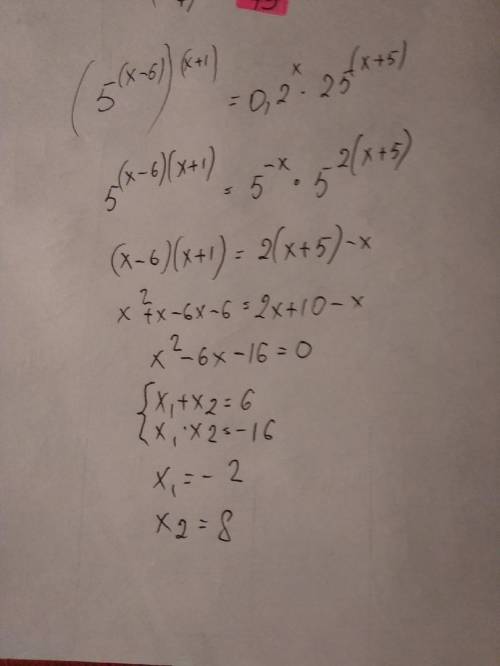 (5^(x-6))^(x+1) = 0,2^x · 25^(x+5)
5^(x-6)(x+1) = 5^-x · 5^2(x+5)
(x-6)(x+1) = 2(x+5)-x
x^2+x-6x-6=2x+10-x
x^2-6x-16=0
{x₁+x₂=6
{x₁·x₂=-16
x₁=-2
x₂=8